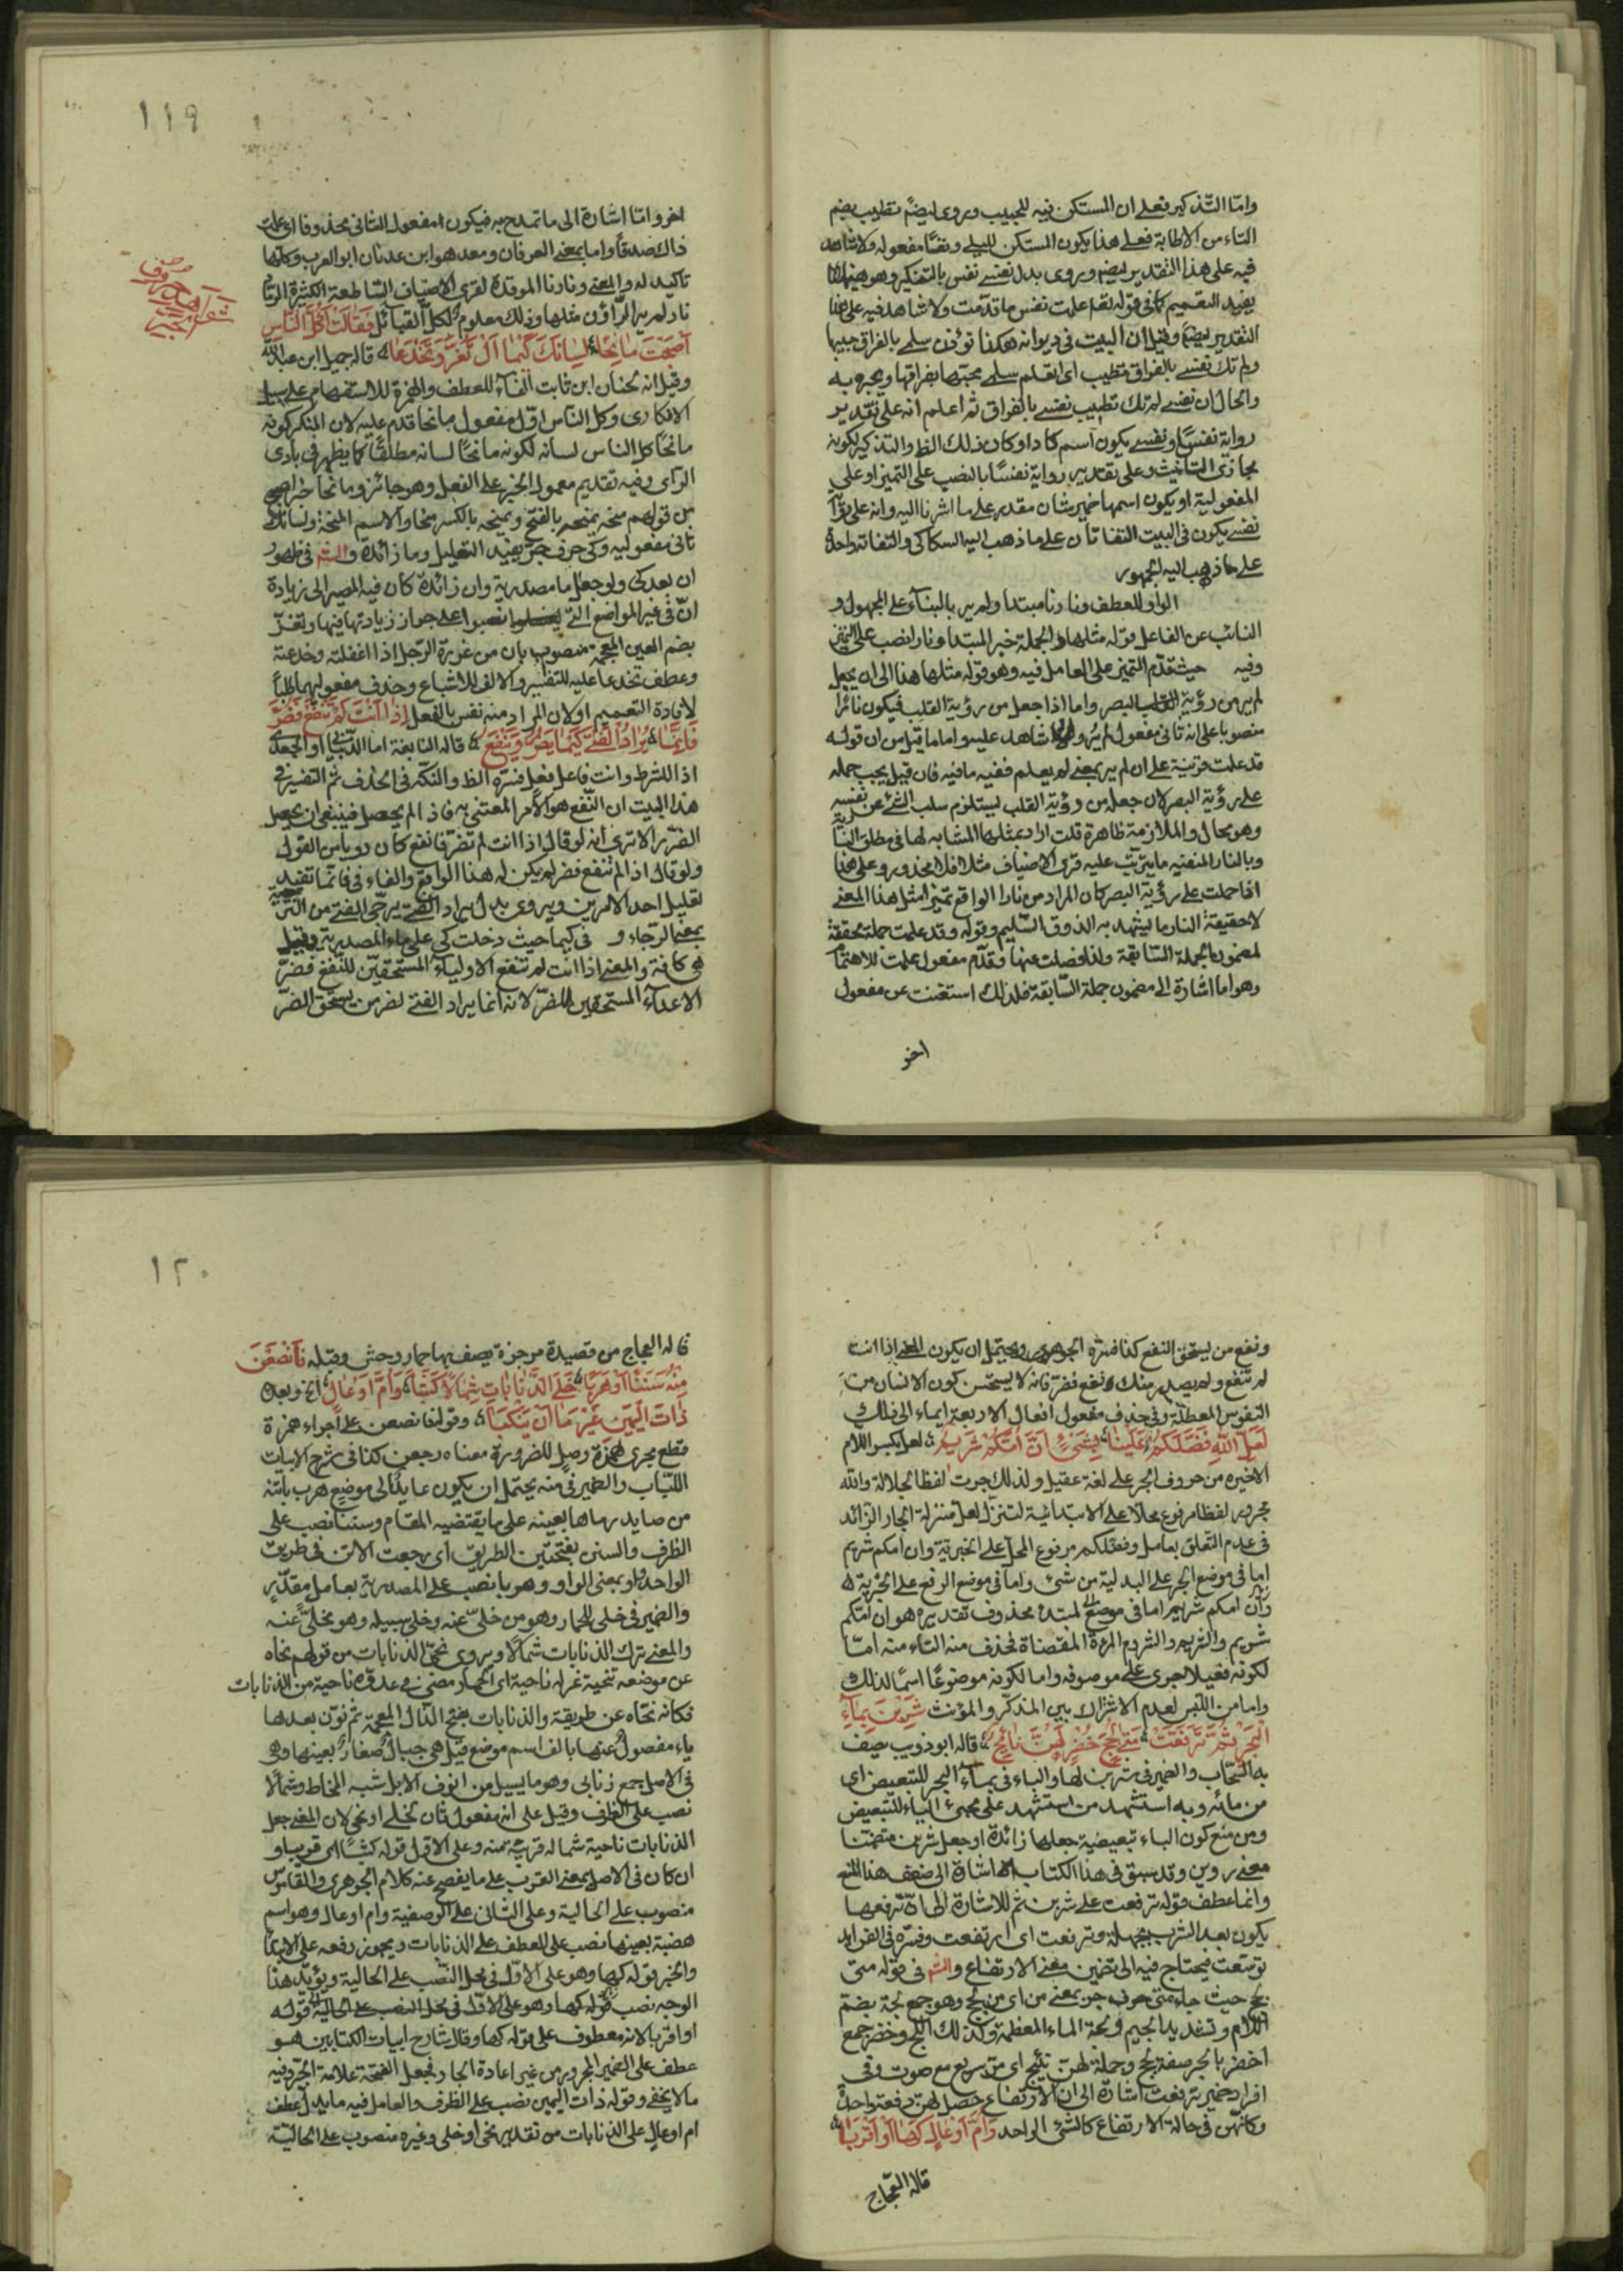 وامّا التّذكير فعلى ان المستكن فيه للحبيب ويروى ايضًا تطيب بضم
التاء من الاطابة فعلى هذا يكون المستكن لليلى ونفسًا مفعوله ولا شاهد
فيه على هذا التقدير ايضم ويروى بدل نفسى نفس بالتنكير وهو ههنا
يفيد التعميم كما فى قوله تعم علمت نفس ما قدّمت ولا شاهد فيه على هذا
التقدير ايضًا وقيل ان البيت فى ديوانه هكذا تؤذن سلمى بالفراق حبيبها
ولم تك نفسى بالفراق تطيب اى اتعلم سلمى محبّها بفراقها ويجهر به
والحال ان نفسى لم تك تطيب نفسى بالفراق ثم اعلم انه على تقدير
رواية نفسًا ونفسى يكون اسم كاد او كان ذلك الظ والتذكير لكونه
مجازى التانيث وعلى تقدير رواية نفسًا بالنصب على التميز او على
المفعولية او يكون اسمها ضمير شان مقدر على ما اشرنا اليه وانه على رواية
نفسى يكون فى البيت التفاتان على ما ذهب اليه السكاكى والتفات واحد
على ما ذهب اليه الجمهور
الواو للعطف ونارنا مبتدا ولم ير بالبناء على المجهول و
النائب عن الفاعل قوله مثلها والجملة خبر المبتدا ونارا نصب على التميز
وفيه حيث قدّم التميز على العامل فيه وهو قوله مثلها هذا الى ان يجعل
لم ير من رؤية البصر واما اذا جعل من رؤية القلب فيكون نائرا
منصوبا على انه ثانى مفعول لم ير ولا شاهد عليه واما ما قيل من ان قوله
قد علمت قرينة على ان لم ير بمعنى لم يعلم ففيه ما فيه فان قيل يجب حمله
على رؤية البصر لان جعله من رؤية القلب يستلزم سلب الشئ عن نفسه
وهو محال والملازمة ظاهرة قلت اراد بمثلها المشابه لها فى مطلق النارية
وبالنار المنفيه ما يترتب عليه قرى الاضياف مثلا فلا محذور وعلى هذا
اذا حملت على رؤية البصر كان المراد من نارا الواقع تميزا مثل هذا المعنى
لا حقيقة النار ما يشهد به الذوق السّليم وقوله وقد علمت جملة محققة
لمضمون الجملة السّابقة ولذا فصلت عنها وقدّم مفعول علمت للاهتمام
وهو اما اشارة الى مضمون جملة السّابقة فلذلك استغنت عن مفعول
اخر
١١٩
اخر وامّا اشارة الى ما تمدح به فيكون المفعول الثانى محذوفا اى علمت
ذاك صدقًا واما بمعنى العرفان ومعد هو ابن عدنان ابو العرب وكلها
تاكيد له والمعنى ونارنا الموقدة لقرى الاضياف السّاطعة الكثيرة الرماد
نار لم ير الرّاؤن مثلها وذلك معلوم لكل القبائل فَقَالَتْ أَكُلَّ النَّاسِ
أَصْبَحْتَ مَانِحًا لِسَانَكَ كَيْمَا أَنْ تَغُرَّ وَتَخْدَعَا قاله جميل ابن عبد الله
وقيل انه لحنان ابن ثابت الفاء للعطف والهمزة للاستفهام على سبيل
الانكارى وكل الناس اوّل مفعول مانحا قدّم عليه لان المنكر كونه
مانحًا كل الناس لسانه لكونه مانحًا لسانه مطلقًا كما يظهر فى بادى
الرّاى وفيه تقديم معمول الخبر على الفعل وهو جائز ومانحا خبر اصبح
من قولهم منحه يمنحه بالفتح ويمنحه بالكسر منحا والاسم المنحة ولسانك
ثانى مفعوليه وكى حرف جرّ يفيد التعليل وما زائدة والشم فى ظهور
ان بعد كى ولو جعل ما مصدرية وان زائدة كان فيه المصير الى زيادة
انّ فى غير المواضع التى نصبوا على جواز زيادتها فيها وتغرّ
بضم الغين المعجمة منصوب بان من غررة الرّجل اذا اغفلته وخدعته
وعطف تخدعا عليه للتفسير والالف للاشباع وحذف مفعوليهما طلبًا
لافادة التعميم او لان المراد منه نفس بالفعل إِذَا أَنْتَ لَمْ تَنْفَعْ فَضُرَّ
فَإِنَّمَا يُرَادُ الْفَتَى كَيْمَا يَضُرُّ وَيَنْفَعُ قاله النابغة اما الذبيانى او الجعدى
اذا للشرط وانت فاعل فعل فسّره الظ والنكتة فى الحذف ثم التفسير فى
هذا البيت ان النّفع هو الامر المعتنى به فاذا لم يحصل فينبغى ان يحصل
الضرّر الا ترى انه لو قال اذا انت لم تضر فانفع كان دوباس القول
ولو قال اذا لم تنفع فضر لم يكن له هذا الواقع والفاء فى فانّما تفيد
تعليل احد الامرين ويروى بدل يراد الفتى يرجّى الفتى من الترجية
بمعنى الرّجاء و فى كيما حيث دخلت كى على ماء المصدرية وقيل
هى كافة والمعنى اذا انت لم تنفع الاولياء المستحقين للنفع فضرّ
الاعداء المستحقين للضرّ لانه انما يراد الفتى لضر من يستحق الضرّ
ونفع من يستحق النفع كذا فسّره الجوهرى ويحتمل ان يكون المعنى اذا انت
لم تنفع ولم يصدر منك نفع فضرّ فانه لا يستحسن كون الانسان من
النفوس المعطلة وفى حذف مفعول افعال الاربعة ايماء الى ذلك
لَعَلِّ اللهِ فَضَّلَكُمْ عَلَيْنَا بِشَيْءٍ أَنَّ أُمَّكُمْ شَرِيمُ لعل بكسر اللام
الاخيره من حروف الجر على لغة عقيل ولذلك جرت لفظ الجلالة والله
مجرور لفظا مرفوع محلا على الابتدائية لتنزل لعل منزلة الجار الزائد
فى عدم التعلق بعامل وفضلكم مرفوع المحل على الخبرية وان امكم شريم
اما فى موضع الجر على البدلية من شئ واما فى موضع الرفع على الخبرية
وان امكم شريم اما فى موضع لمبتدء محذوف تقديره هو ان امّكم
شريم والشريم والشروم المرءة المفضاة فحذف منه التاء منه امّا
لكونه فعيلا جرى على موصوفه واما لكونه موضوعًا اسمًا لذلك
واما من اللّبس لعدم الاشتراك بين المذكّر والمؤنث شَرِبْنَ بِمَاءِ
الْبَحْرِ ثُمَّ تَرَفَّعَتْ مَتَى لُجَجٍ خُضْرٍ لَهُنَّ نَئِيجُ قاله ابو ذويب يصف
به السّحاب والضمير فى شربن لها والباء فى بماء البحر للتبعيض اى
من مائه وبه استشهد من استشهد على مجئ الباء للتبعيض
ومن منع كون الباء تبعيضية جعلها زائدة او جعل شربن متضمّنا
معنى روين وقد سبق فى هذا الكتاب الاشارة الى ضعف هذا المنع
وانما عطف قوله ترفعت على شربن ثم للاشارة الى انّ ترفعها
يكون بعد الشرب بمهلة وترفعت اى ارتفعت وفسّره فى الفرائد
توسّعت فيحتاج فيه الى تضمين معنى الارتفاع والشم فى قوله متى
لجج حيث جاء متى حرف جر بمعنى من اى من لجج وهو جمع لجة بضم
اللام وتشديد الجيم ولجة الماء المعظمة وكذلك اللج وخضر جمع
اخضر بالجر صفة لجج وجملة لهنّ نئيج اى مرّ سريع مع صوت وفى
افراد ضمير ترفعت اشارة الى ان الارتفاع حصل لهنّ دفعة واحدة
وكانّهن فى حالة الارتفاع كالشئ الواحد وَأُمَّ أَوْعَالٍ كَهَا أَوْ أَقْرَبَا
قاله العجاج
١٢٠
قاله العجاج من قصيدة مرجزة يصف بها حمار وحش وقبله
مِنْهُ سَنَنًا أَوْ هَرَبَا خَلَّى الذَّنَابَاتِ شِمَالًا كَثَبَا وَأُمَّ أَوْعَالٍ الخ وبعده
ذَاتَ الْيَمِينِ غَيْرَ مَا أَنْ يَنْكَبَا وقوله فانصعن على اجراء همزة
قطع مجرى همزة وصل للضرورة معناه رجعن كذا فى شرح الابيات
اللّباب والضمير فى منه يحتمل ان يكون عايدًا الى موضع هرب باتنه
من صايد رماها بعينه على ما يقتضيه المقام وسننا نصب على
الظرف والسنن بفتحتين الطريق اى رجعت الاتن فى طريق
الواحد واو بمعنى الواو وهربا نصب على المصدرية بعامل مقدّر
والضمير فى خلى للحمار وهو من خلّى عنه وخلى سبيله وهو مخلّى عنه
والمعنى ترك الذنابات شمالا ويروى نحّى الذنابات من قولهم نحاه
عن موضعه تنحية غرله ناحية اى الحمار مضى فى عدوه ناحية من الذنابات
فكانه نحّاه عن طريقة والذنابات بفتح الذال المعجمة ثم نون بعدها
ياء مفصول عنها بالف اسم موضع قيل هى جبال صغار بعينها وهى
فى الاصل جمع ذنابى وهو ما يسيل من انوف الابل شبه المخاط وشمالا
نصب على الظرف وقيل على انه مفعول ثان لخلى او نحى لان المعنى جعل
الذنابات ناحية شماله قريبة منه وعلى الاوّل قوله كثبًا اى قريبا و
ان كان فى الاصل بمعنى القرب على ما يفصح عنه كلام الجوهرى والقاموس
منصوب على الحالية وعلى الثانى على الوصفية وام اوعال وهو اسم
هضبة بعينها نصب على للعطف على الذنابات ويجوز رفعه على الابتداء
والخبر قوله كها وهو على الاوّل فى محل النّصب على الحالية ويؤيّد هذا
الوجه نصب قوله كها وهو على الاوّل فى محل النصب على الحالية قوله
او اقربا لانه معطوف على قوله كها وقال شارح ابيات الكتابين هو
عطف على الضمير المجرور من غير اعادة الجار فجعل الفتحة علامة الجرّ وفيه
ما لا يخفى وقوله ذات اليمين نصب على الظرف والعامل فيه ما يدل عطف
ام اوعال على الذنابات من تقدير نحى او خلى وغيره منصوب على الحالية